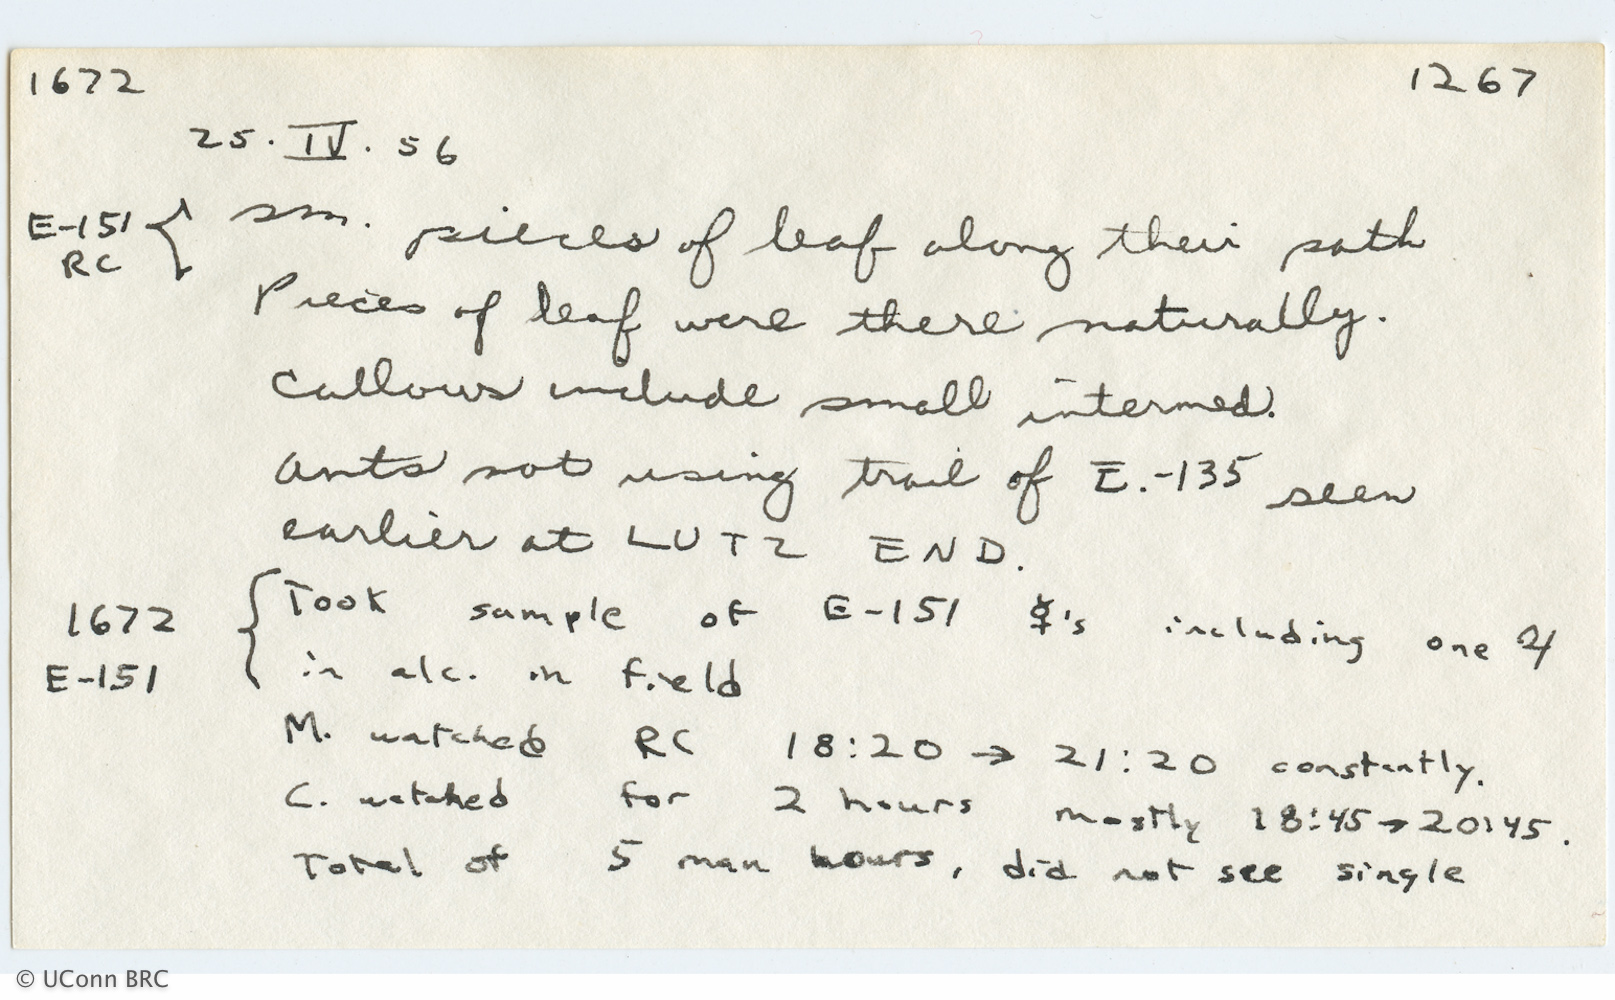 1672 1267
25. IV. 56
E-151 RC { sm. pieces of leaf along their path
Pieces of leaf were there naturally.
Callows include small intermed.
Ants not using trail of E.-135 seen
earlier at LUTZ END.
1672 E-151 { Took sample of E-151 ☿'s including one ♃
in alc. in field
M. watched RC 18:20 → 21:20 constantly.
C. watched for 2 hours mostly 18:45 → 20:45.
Total of 5 man hours, did not see single
© UConn BRC